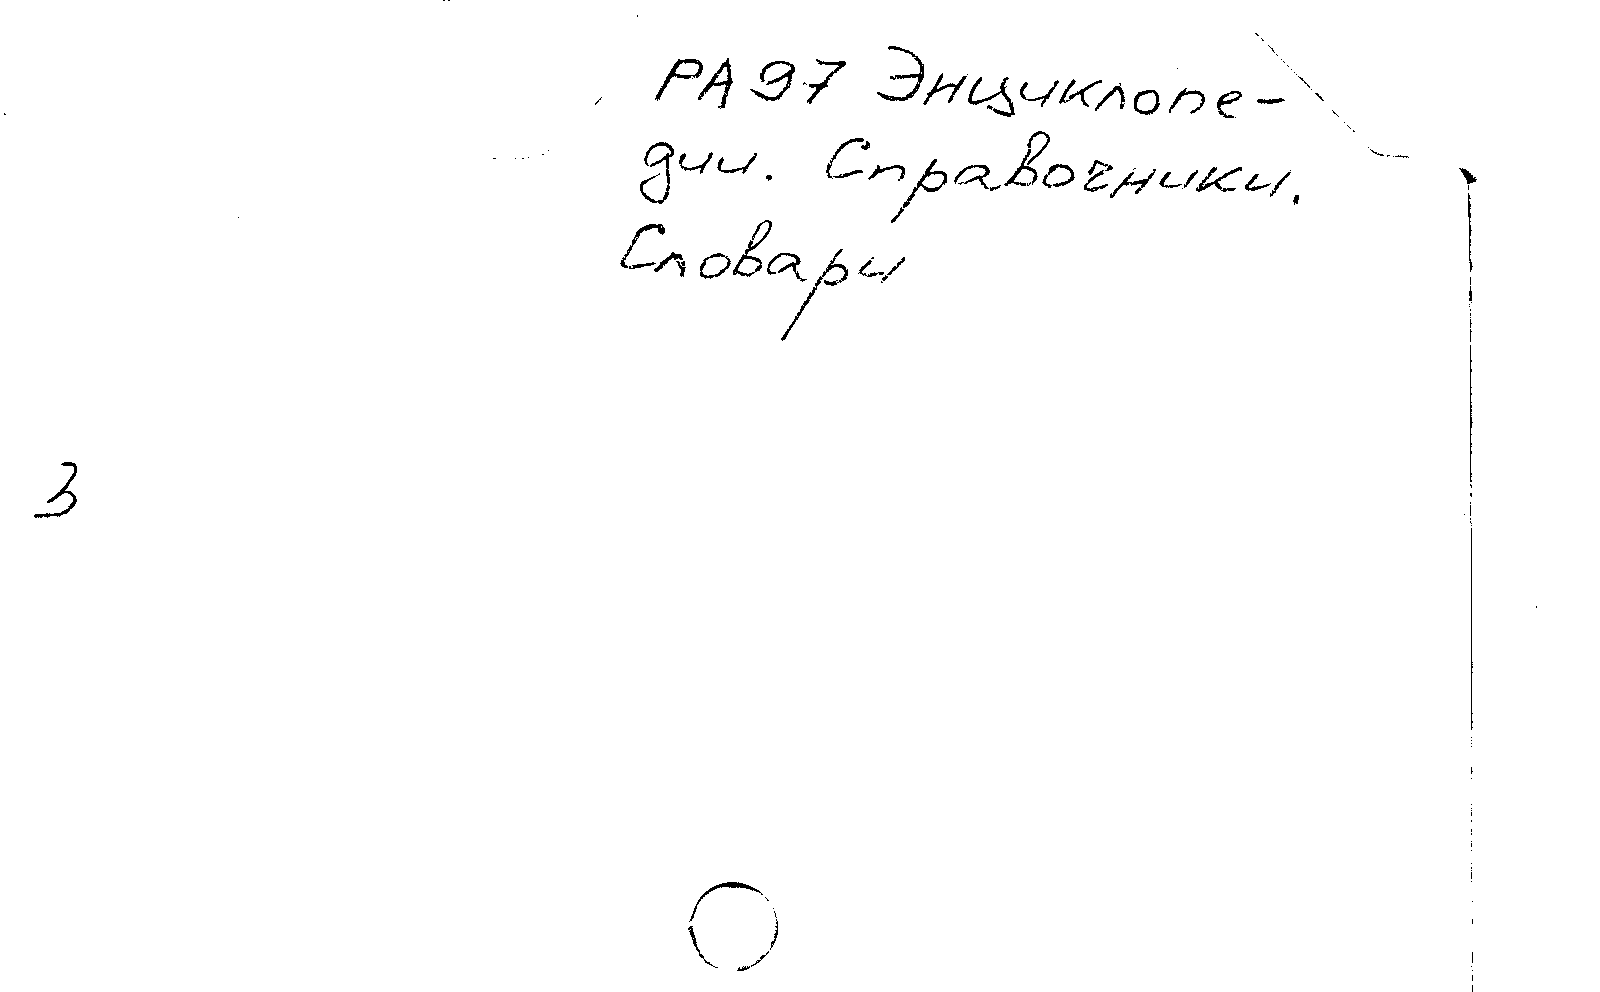 РА97 Энциклопе-
дии. Справочники.
Словари
3